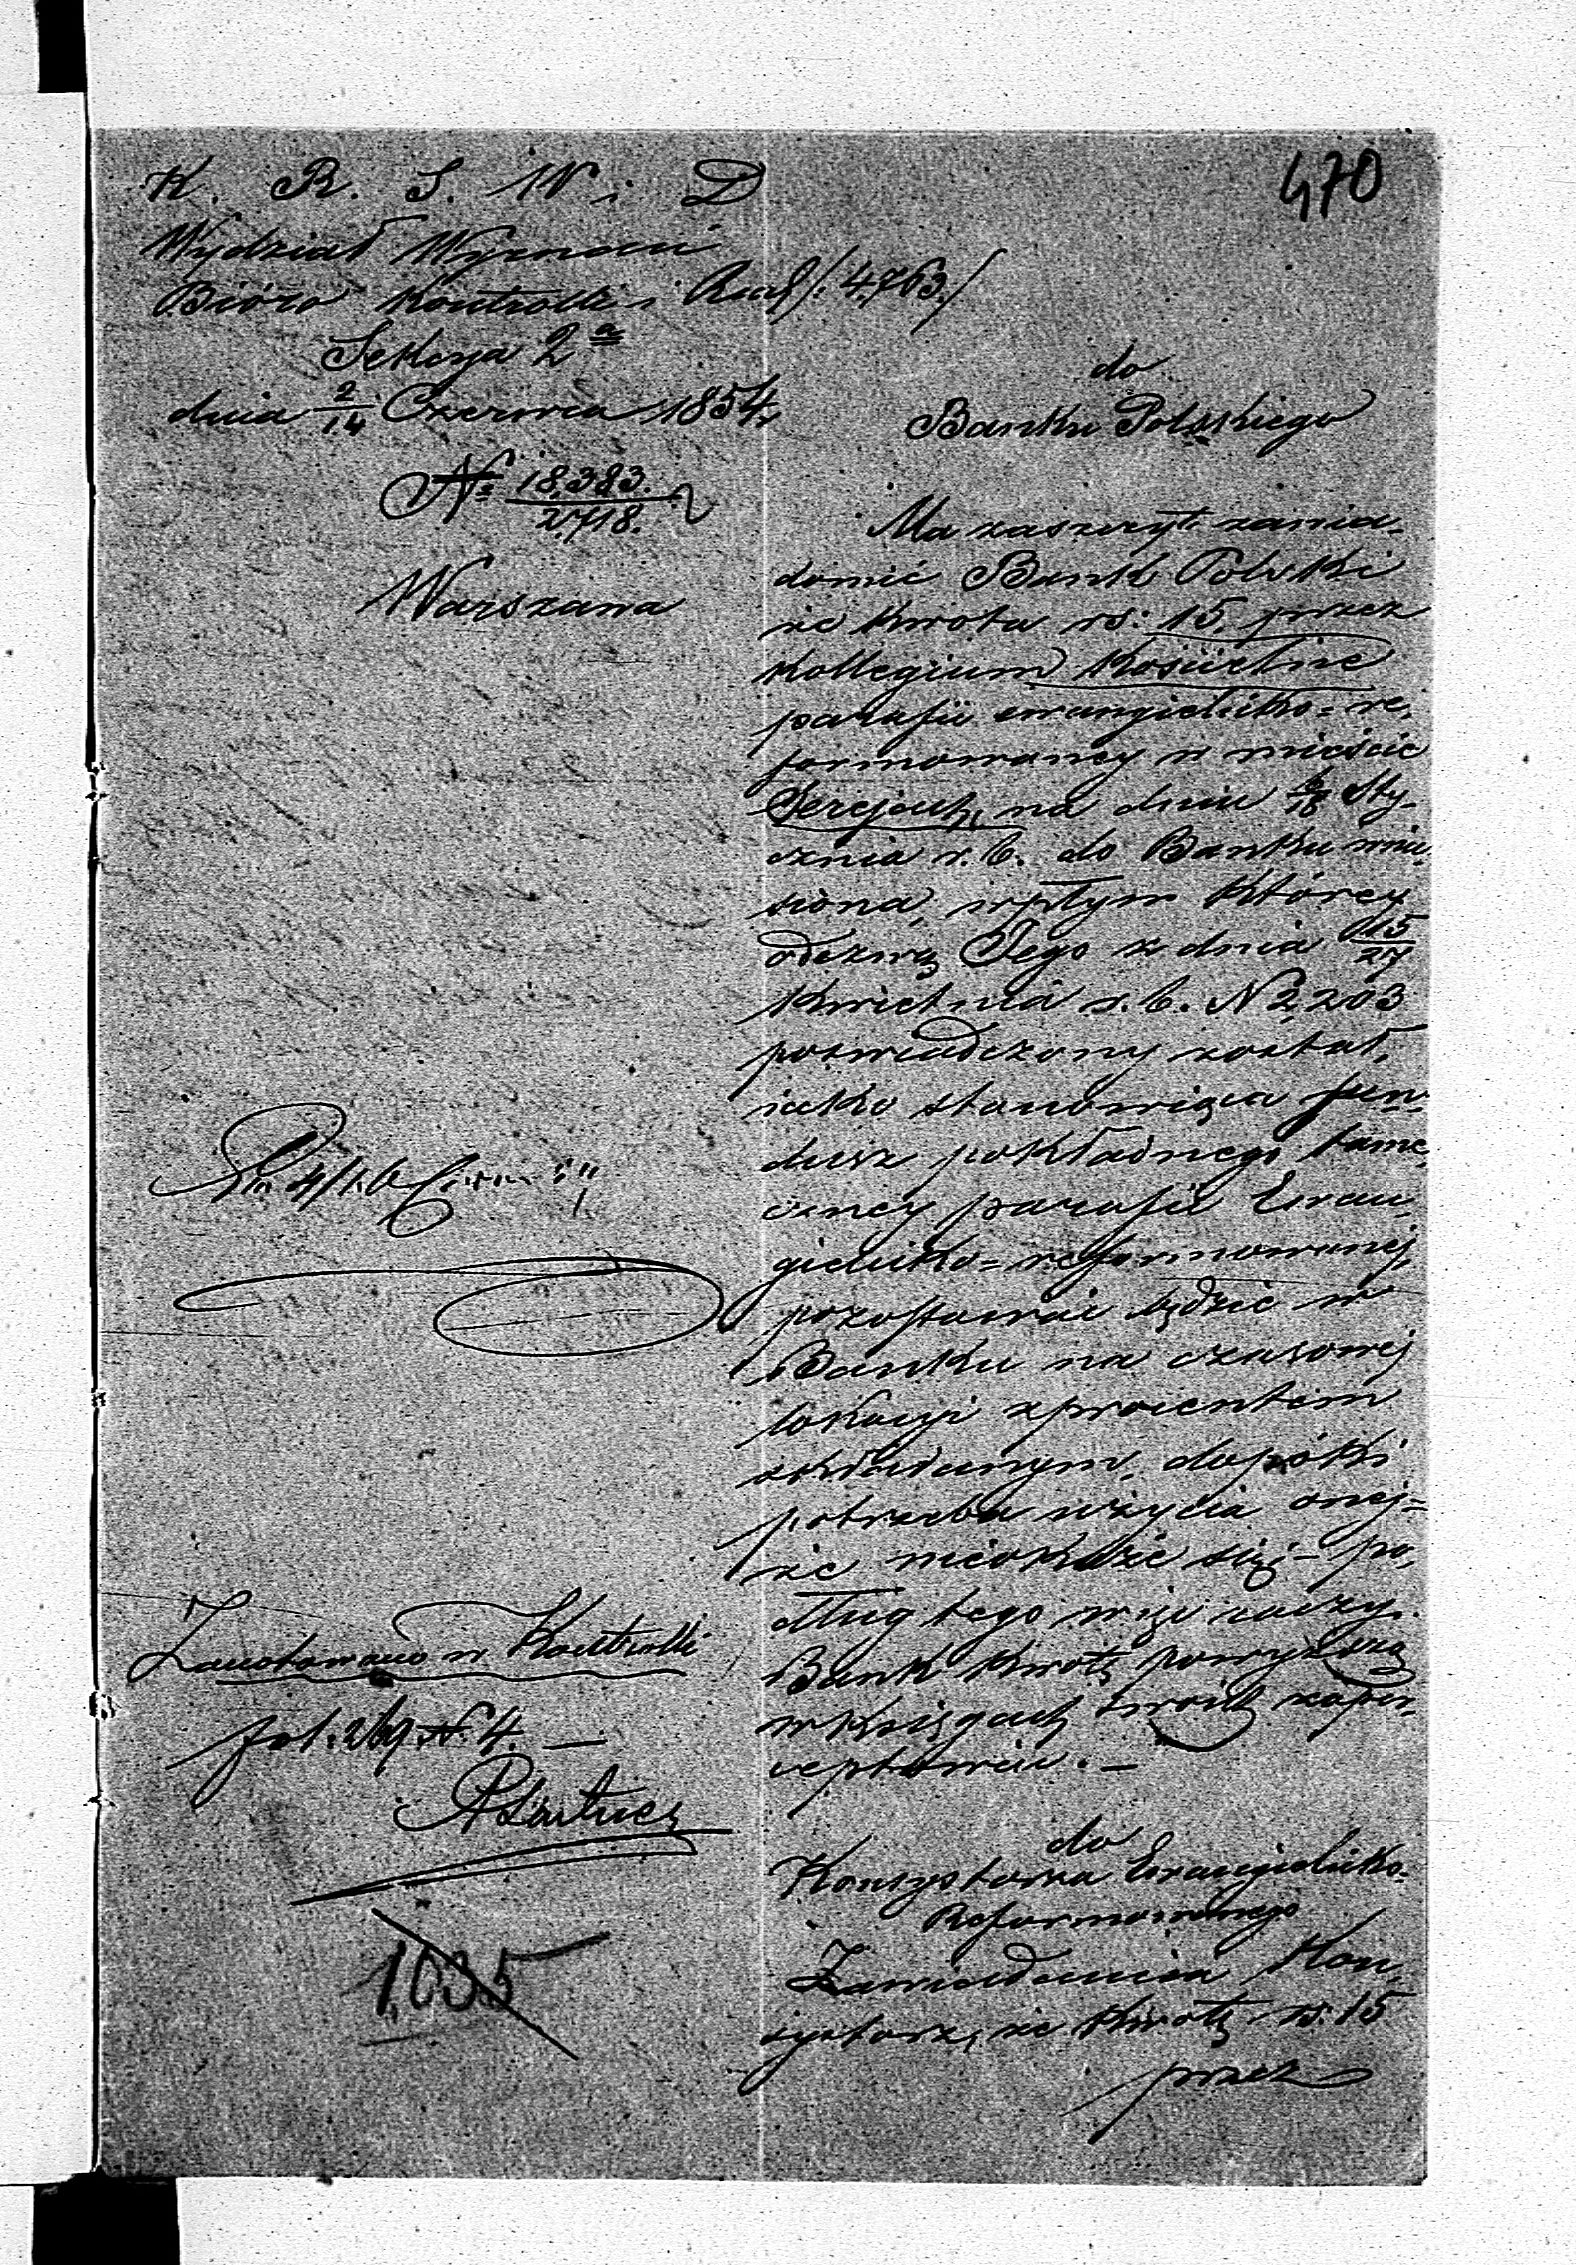 470
K. R. S. W. i D
Wydział Wyznań
Bióro Kontrolli i Rach /: 4,763 :/
Sekcya 2a
dnia 2/14 Czerwca 1854
No 18,383. / 2,718.
Warszawa
do
Banku Polskiego
Ma zaszczyt zawia-
domić Bank Polski
że kwota rs: 15, przez
Kollegium Kościelne
parafii ewangielicko=re,
formowaney w mieście
Serejach, na dniu 6/18 Sty-
cznia r. b. do Banku wnie,
siona, wpływ którey
odezwą Jego z dnia 15/27
Kwietnia r. b. N 2,203
poświadczony został,
iako stanowiąca fun-
dusz pokładnego tame,
czney parafii Ewan,
gielicko=reformowanej,
pozostawać będzie w
Banku na czasowej
lokacyi z procentem
składanym, dopóki
potrzeba użycia onej=
że nieokaże się – po,
dług tego więc raczy
Bank kwotę powyższą
w księgach swoich zaper-
ceptować. –
Zanotowano w Kontrolli
fol: 269 N. 4. —
1,035
do
Konsystorza Ewangielicko-
Reformowanego
Zawiadamia Kon,
systorz, że kwotę rs: 15
przez